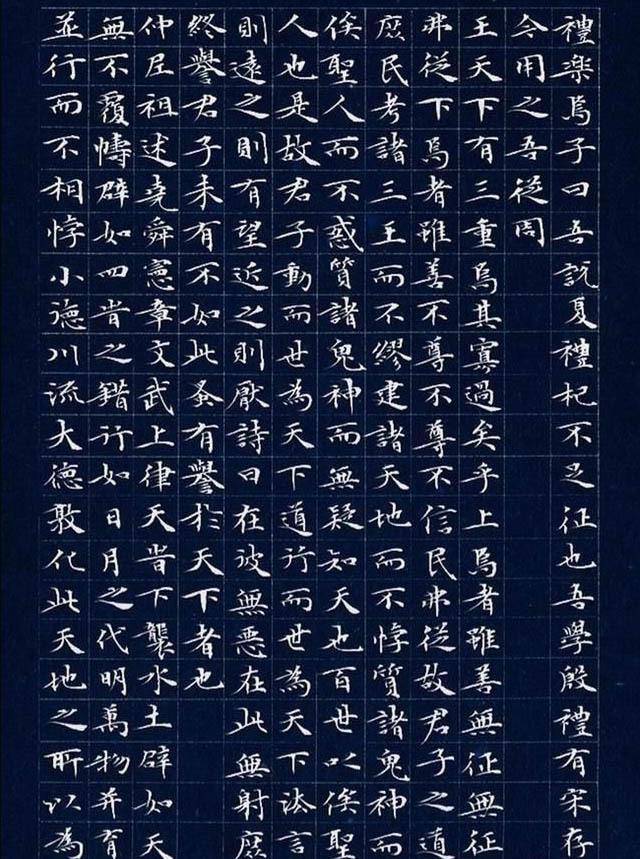 禮樂焉子曰吾說夏禮杞不足征也吾學殷禮有宋存
今用之吾從周
王天下有三重焉其寡過矣乎上焉者雖善無征無征
弗從下焉者雖善不尊不尊不信民弗從故君子之道
庶民考諸三王而不繆建諸天地而不悖質諸鬼神而
俟聖人而不惑質諸鬼神而無疑知天也百世以俟聖
人也是故君子動而世為天下道行而世為天下法言
則遠之則有望近之則厭詩曰在彼無惡在此無射庶
終譽君子未有不如此蚤有譽於天下者也
仲尼祖述堯舜憲章文武上律天旹下襲水土辟如天
無不覆幬辟如四旹之錯行如日月之代明萬物并育
並行而不相悖小德川流大德敦化此天地之所以為